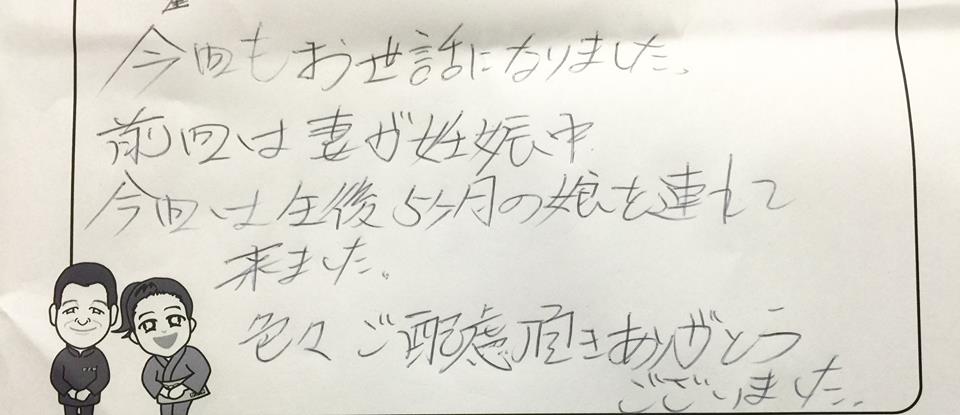 今回もお世話になりました。
前回は妻が妊娠中
今回は生後5ヶ月の娘を連れて
来ました。
色々ご配慮頂きありがとう
ございました。